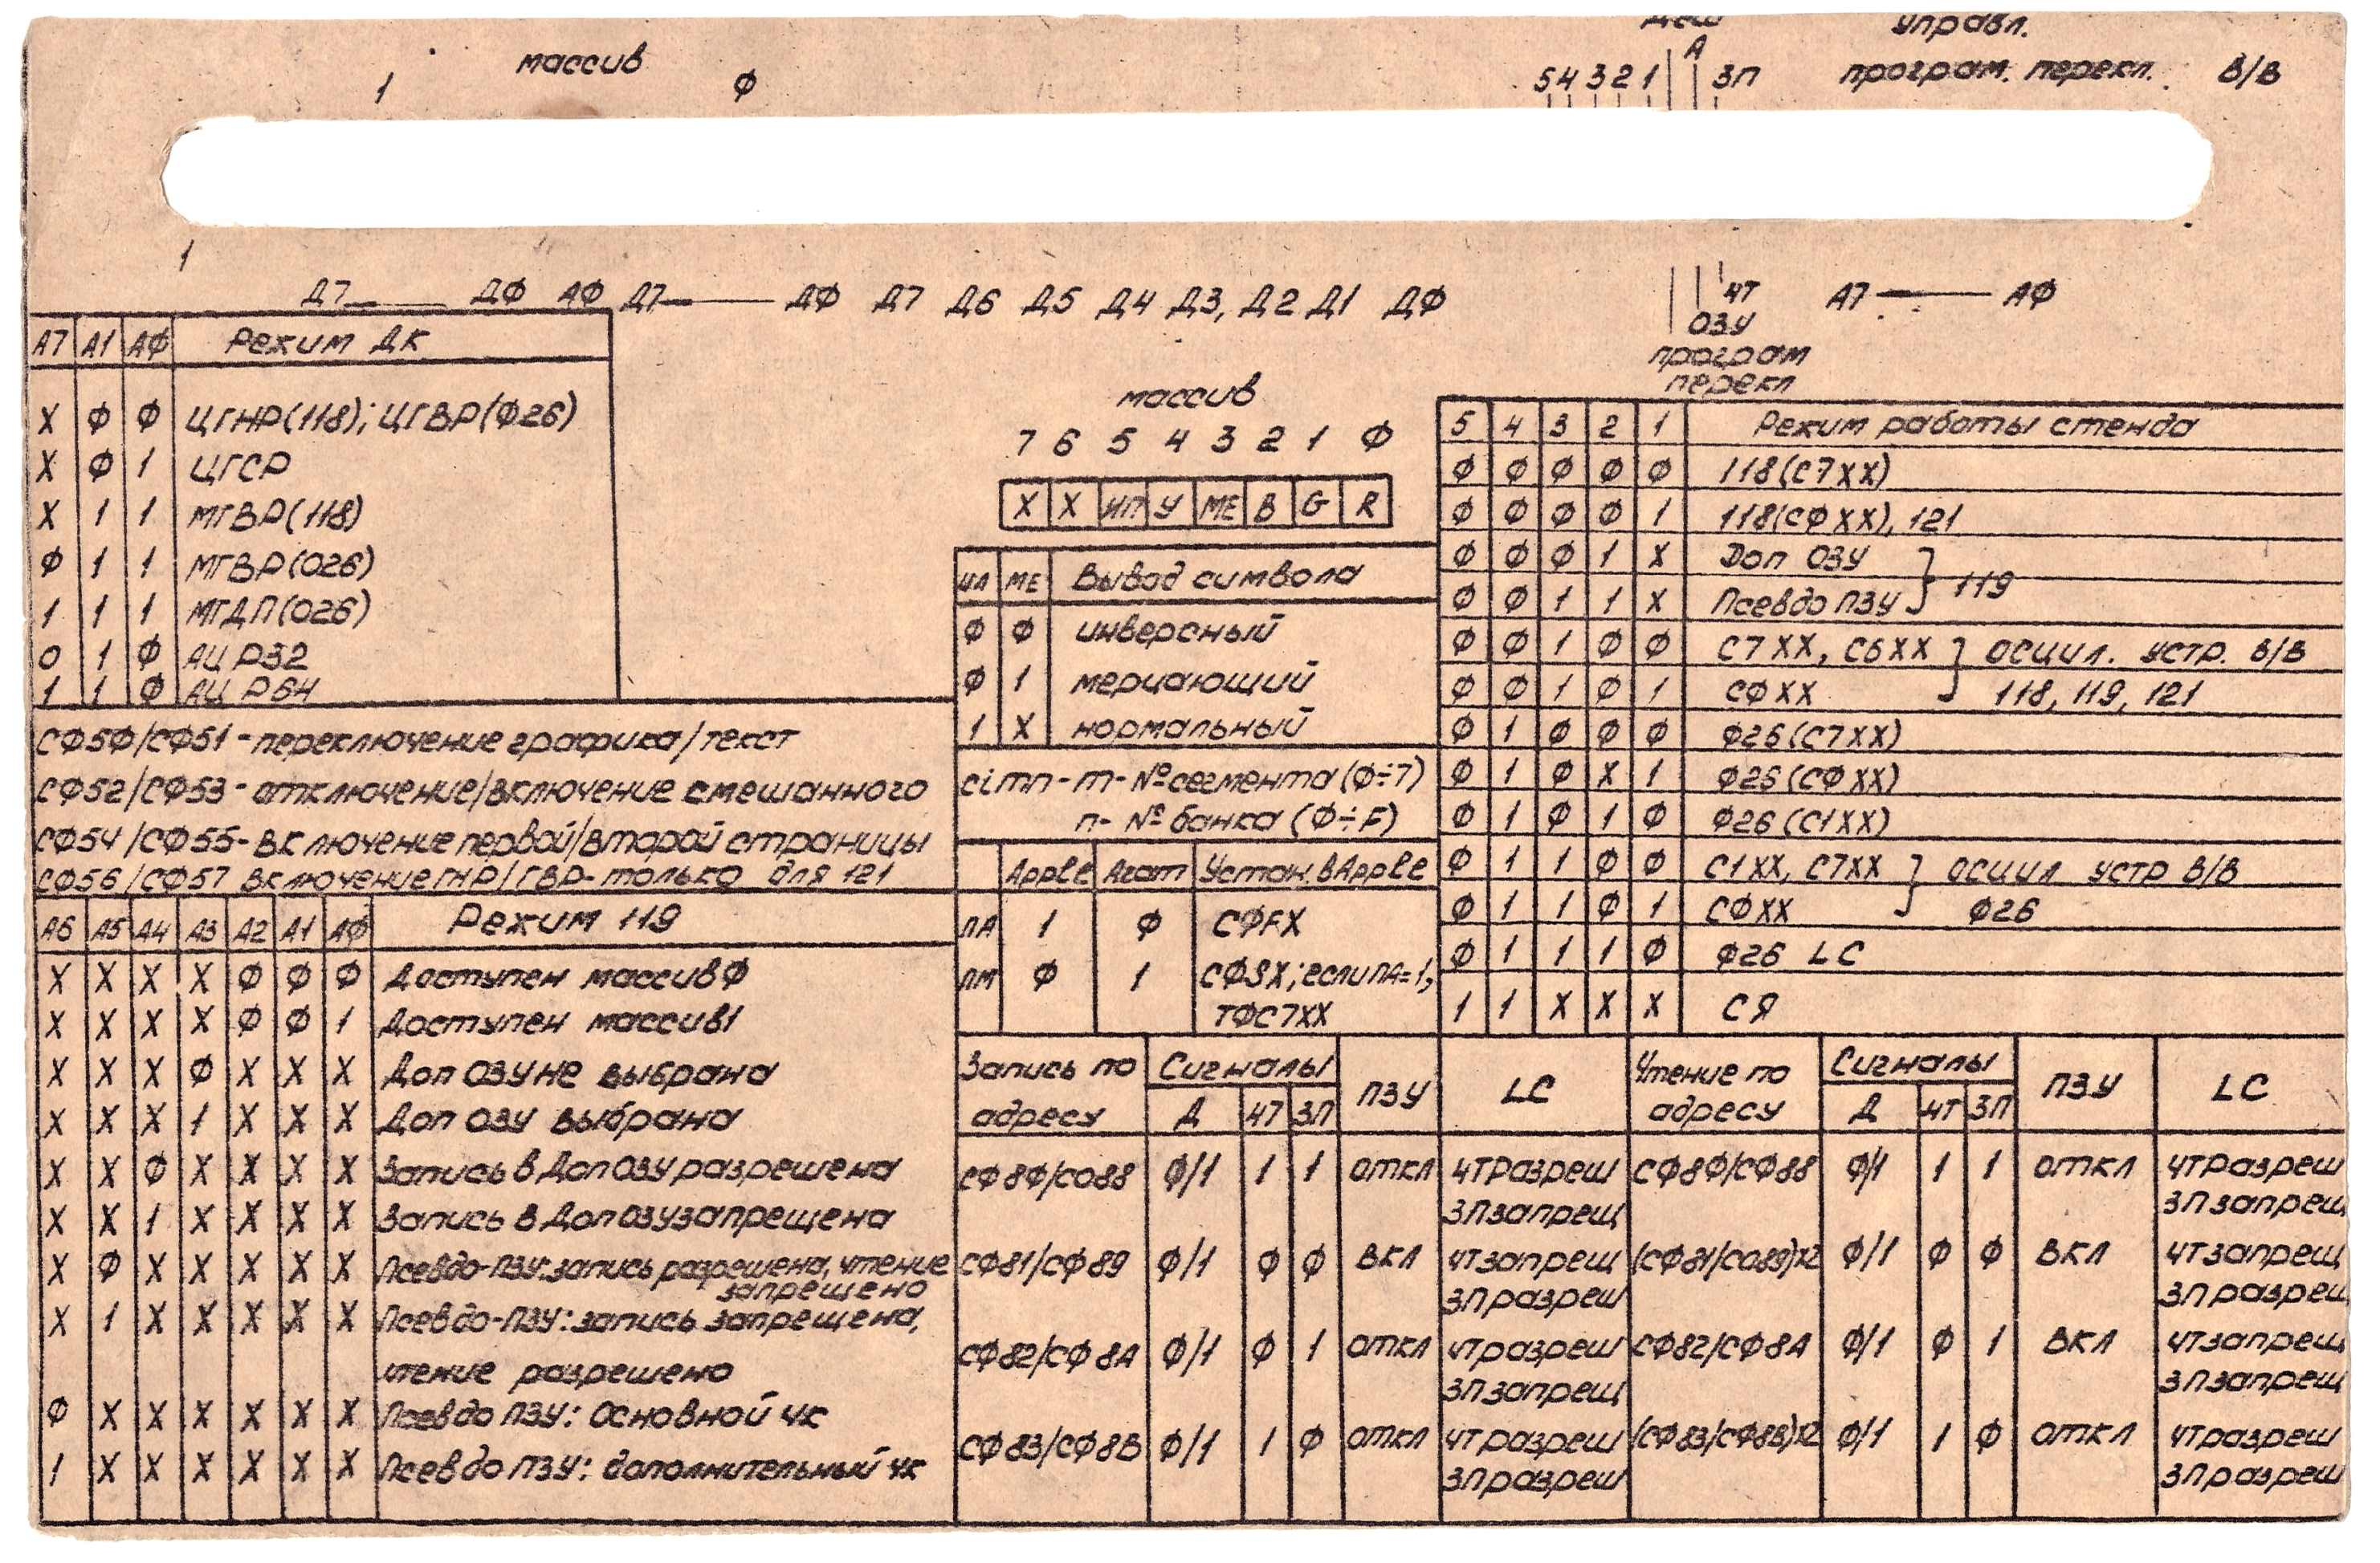 массив
1 Ф
управл.
А
5 4 3 2 1 ЗП програм. перекл. В/В
1
Д7 — ДФ АФ Д7 — ДФ Д7 Д6 Д5 Д4 Д3, Д2 Д1 ДФ ЧТ А7 — АФ
ОЗУ
програм
перекл
А7 А1 АФ Режим ДК
X Ф Ф ЦГНР(118); ЦГВР(Ф26)
X Ф 1 ЦГСР
X 1 1 МГВР(118)
Ф 1 1 МГВР(026)
1 1 1 МГДП(026)
0 1 Ф АЦР32
1 1 Ф АЦР64
СФ5Ф/СФ51 - переключение графика/текст
СФ52/СФ53 - отключение/включение смешанного
СФ54/СФ55 - включение первой/второй страницы
СФ56/СФ57 включение ГНР/ГВР- только для 121
А6 А5 А4 А3 А2 А1 АФ Режим 119
X X X X Ф Ф Ф Доступен массив Ф
X X X X Ф Ф 1 Доступен массив1
X X X Ф X X X Доп ОЗУ не выбрана
X X X 1 X X X Доп ОЗУ выбрана
X X Ф X X X X Запись в Доп ОЗУ разрешена
X X 1 X X X X Запись в Доп ОЗУ запрещена
X Ф X X X X X Псевдо-ПЗУ: запись разрешена, чтение
запрещено
X 1 X X X X X Псевдо-ПЗУ: запись запрещена,
чтение разрешено
Ф X X X X X X Псевдо ПЗУ: Основной ЧК
1 X X X X X X Псевдо ПЗУ: дополнительный ЧК
массив
7 6 5 4 3 2 1 Ф
X X ИП У МЕ B G R
МЕ Вывод символа
Ф Ф инверсный
Ф 1 мерцающий
1 X нормальный
cimn - m - № сегмента (Ф÷7)
n - № банка (Ф÷F)
Apple Агат Устан. в Apple
ПА 1 Ф СФFX
ПМ Ф 1 СФ8X; если ПА=1,
ТФС7XX
5 4 3 2 1 Режим работы стенда
Ф Ф Ф Ф Ф 118(С7XX)
Ф Ф Ф Ф 1 118(СФXX), 121
Ф Ф Ф 1 X Доп ОЗУ
119
Ф Ф 1 1 X Псевдо ПЗУ
Ф Ф 1 Ф Ф С7XX, С6XX } осцил. устр. В/В
Ф Ф 1 Ф 1 СФXX 118, 119, 121
Ф 1 Ф Ф Ф Ф26(С7XX)
Ф 1 Ф X 1 Ф26(СФXX)
Ф 1 Ф 1 Ф Ф26(С1XX)
Ф 1 1 Ф Ф С1XX, С7XX } осцил устр В/В
Ф 1 1 Ф 1 СФXX Ф26
Ф 1 1 1 Ф Ф26 LC
1 1 X X X СЯ
Запись по Сигналы ПЗУ LC Чтение по Сигналы ПЗУ LC
адресу Д ЧТ ЗП адресу Д ЧТ ЗП
СФ8Ф/С088 Ф/1 1 1 откл ЧТ разреш СФ8Ф/СФ88 Ф/1 1 1 откл ЧТ разреш
ЗП запрещ ЗП запрещ
СФ81/СФ89 Ф/1 Ф Ф вкл ЧТ запрещ (СФ81/С089)X2 Ф/1 Ф Ф вкл ЧТ запрещ
ЗП разреш ЗП разреш
СФ82/СФ8А Ф/1 Ф 1 откл ЧТ разреш СФ82/СФ8А Ф/1 Ф 1 вкл ЧТ запрещ
ЗП запрещ ЗП запрещ
СФ83/СФ8В Ф/1 1 Ф откл ЧТ разреш (СФ83/СФ8В)X2 Ф/1 1 Ф откл ЧТ разреш
ЗП разреш ЗП разреш